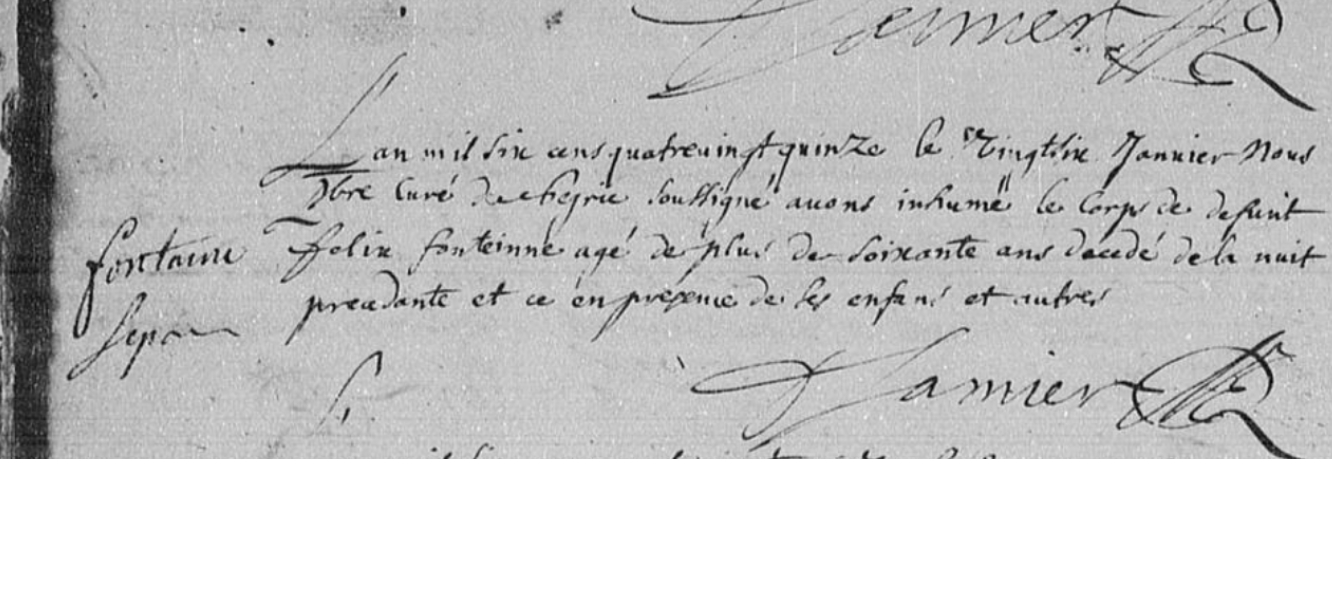 Lanier
Lan mil six cens quatreuingt quinze le vingtsix Jannier Nous
pbre Curé de chegrie soussigné auons inhumé le Corps de defunt
fontaine
felix fonteinne agé de plus de soixante ans decedé de la nuit
precedante et ce en presence de ses enfans et autres
sep
Lanier